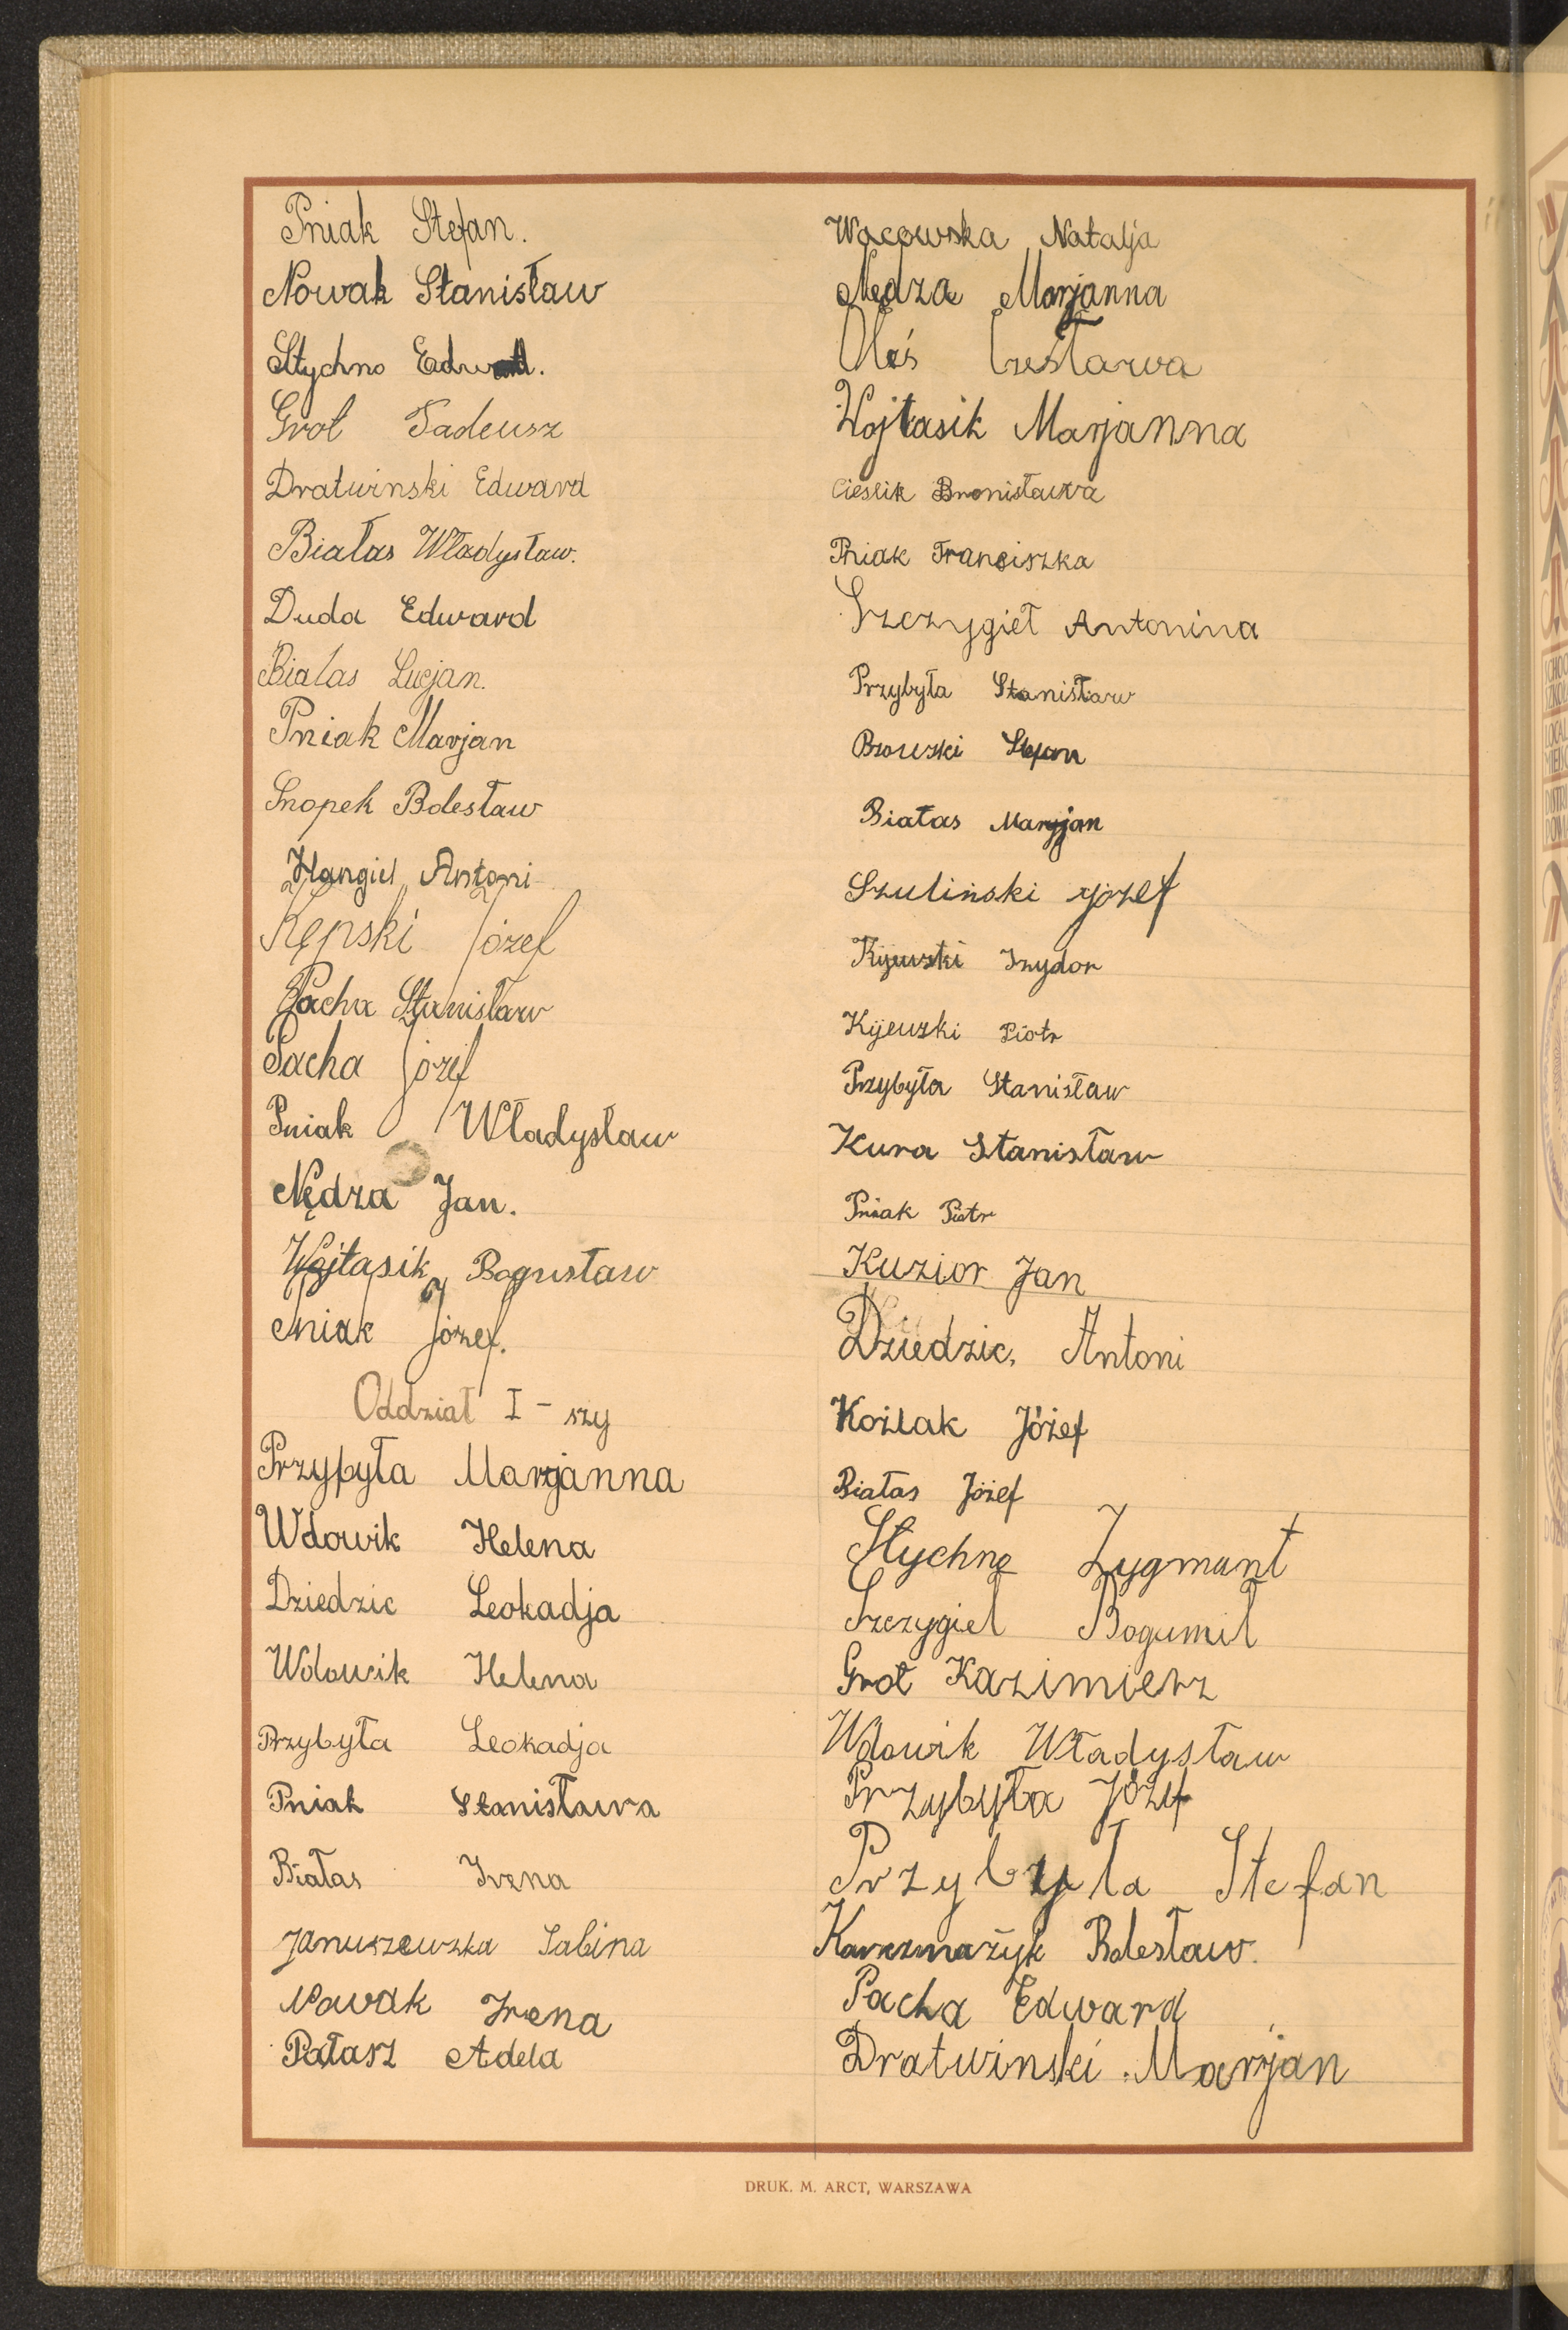 Pniak Stefan.
Nowak Stanisław
Stychno Edward.
Grot Tadeusz
Dratwinski Edward
Białas Władysław.
Duda Edward
Bialas Lucjan.
Pniak Marjan
Snopek Bolesław
Hangiel Antoni
Kępski Józef
Pacha Stanisław
Pacha Józef
Pniak Władysław
Nędza Jan.
Wojtasik Bogusław
Pniak Józef.
Oddział I - szy
Przybyła Marjanna
Wdowik Helena
Dziedzic Leokadja
Wdowik Helena
Przybyła Leokadja
Pniak Stanisława
Białas Irena
Januszewska Sabina
Nowak Irena
Pałasz Adela
Wacowska Natalja
Nędza Marjanna
Oleś Czesława
Wojtasik Marjanna
Cieslik Bronisława
Pniak Franciszka
Szczygieł Antonina
Przybyła Stanisław
Stefan
Białas Marjan
Szuliński Józef
Kijewski Izydor
Kijewski Piotr
Przybyła Stanisław
Kura Stanisław
Pniak Piotr
Kuzior Jan
Dziedzic, Antoni
Koźlak Józef
Białas Józef
Stychno Zygmunt
Szczygieł Bogumił
Grot Kazimierz
Wdowik Władysław
Przybyła Józef
Przybyła Stefan
Karczmażyk Bolesław.
Pacha Edward
Dratwinski Marjan
DRUK. M. ARCT, WARSZAWA